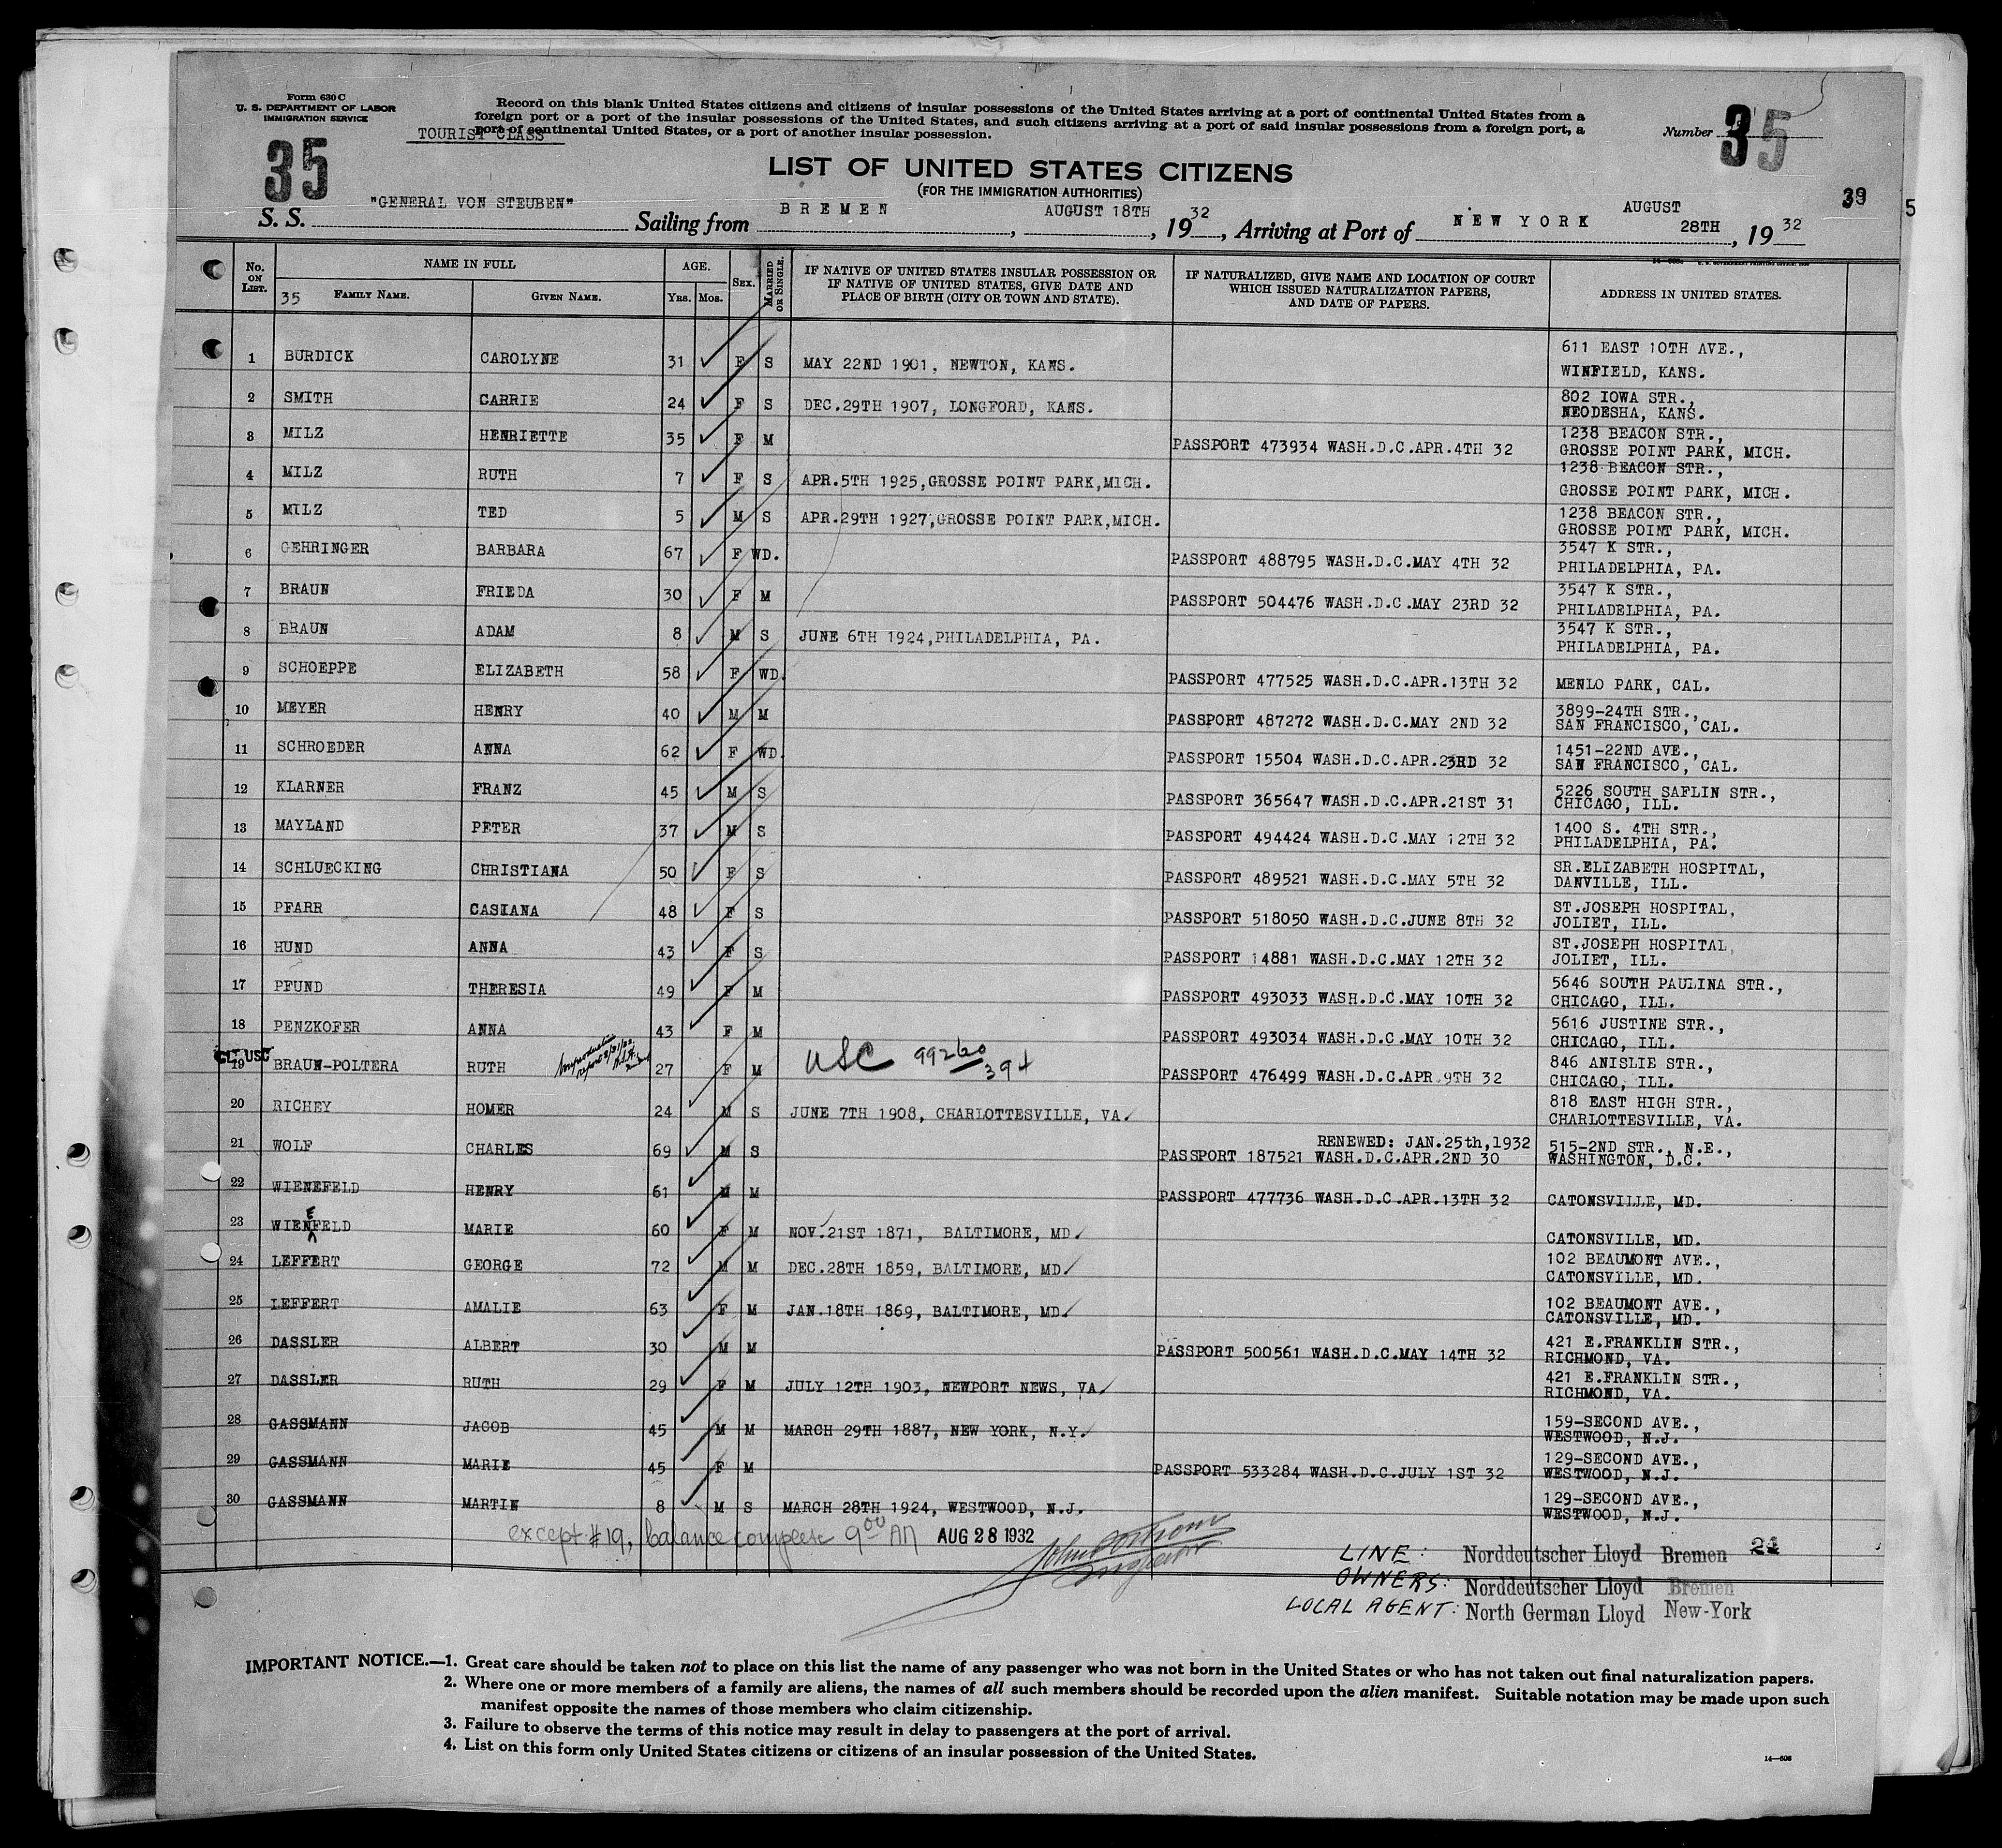 Form 630 C
U. S. DEPARTMENT OF LABOR
IMMIGRATION SERVICE
Record on this blank United States citizens and citizens of insular possessions of the United States arriving at a port of continental United States from a
foreign port or a port of the insular possessions of the United States, and such citizens arriving at a port of said insular possessions from a foreign port, a
port of continental United States, or a port of another insular possession.
TOURIST CLASS
Number 35
35
LIST OF UNITED STATES CITIZENS
(FOR THE IMMIGRATION AUTHORITIES)
39
5
S. S. "GENERAL VON STEUBEN" Sailing from BREMEN, AUGUST 18TH, 1932, Arriving at Port of NEW YORK AUGUST 28TH, 1932
No. ON LIST. NAME IN FULL AGE. Sex. MARRIED OR SINGLE. IF NATIVE OF UNITED STATES INSULAR POSSESSION OR IF NATIVE OF UNITED STATES, GIVE DATE AND PLACE OF BIRTH (CITY OR TOWN AND STATE). IF NATURALIZED, GIVE NAME AND LOCATION OF COURT WHICH ISSUED NATURALIZATION PAPERS, AND DATE OF PAPERS. ADDRESS IN UNITED STATES.
35 FAMILY NAME. GIVEN NAME. Yrs. Mos.
1 BURDICK CAROLYNE 31 F S MAY 22ND 1901, NEWTON, KANS. 611 EAST 10TH AVE., WINFIELD, KANS.
2 SMITH CARRIE 24 F S DEC.29TH 1907, LONGFORD, KANS. 802 IOWA STR., NEODESHA, KANS.
3 MILZ HENRIETTE 35 F M PASSPORT 473934 WASH.D.C.APR.4TH 32 1238 BEACON STR., GROSSE POINT PARK, MICH.
4 MILZ RUTH 7 F S APR.5TH 1925,GROSSE POINT PARK,MICH. 1238 BEACON STR., GROSSE POINT PARK, MICH.
5 MILZ TED 5 M S APR.29TH 1927,GROSSE POINT PARK,MICH. 1238 BEACON STR., GROSSE POINT PARK, MICH.
6 GEHRINGER BARBARA 67 F WD. PASSPORT 488795 WASH.D.C.MAY 4TH 32 3547 K STR., PHILADELPHIA, PA.
7 BRAUN FRIEDA 30 F M PASSPORT 504476 WASH.D.C.MAY 23RD 32 3547 K STR., PHILADELPHIA, PA.
8 BRAUN ADAM 8 M S JUNE 6TH 1924,PHILADELPHIA, PA. 3547 K STR., PHILADELPHIA, PA.
9 SCHOEPPE ELIZABETH 58 F WD. PASSPORT 477525 WASH.D.C.APR.13TH 32 MENLO PARK, CAL.
10 MEYER HENRY 40 M M PASSPORT 487272 WASH.D.C.MAY 2ND 32 3899-24TH STR., SAN FRANCISCO, CAL.
11 SCHROEDER ANNA 62 F WD. PASSPORT 15504 WASH.D.C.APR.23RD 32 1451-22ND AVE., SAN FRANCISCO, CAL.
12 KLARNER FRANZ 45 M S PASSPORT 365647 WASH.D.C.APR.21ST 31 5226 SOUTH SAFLIN STR., CHICAGO, ILL.
13 MAYLAND PETER 37 M S PASSPORT 494424 WASH.D.C.MAY 12TH 32 1400 S. 4TH STR., PHILADELPHIA, PA.
14 SCHLUECKING CHRISTIANA 50 F S PASSPORT 489521 WASH.D.C.MAY 5TH 32 SR.ELIZABETH HOSPITAL, DANVILLE, ILL.
15 PFARR CASIANA 48 F S PASSPORT 518050 WASH.D.C.JUNE 8TH 32 ST.JOSEPH HOSPITAL, JOLIET, ILL.
16 HUND ANNA 43 F S PASSPORT 14881 WASH.D.C.MAY 12TH 32 ST.JOSEPH HOSPITAL, JOLIET, ILL.
17 PFUND THERESIA 49 F M PASSPORT 493033 WASH.D.C.MAY 10TH 32 5646 SOUTH PAULINA STR., CHICAGO, ILL.
18 PENZKOFER ANNA 43 F M PASSPORT 493034 WASH.D.C.MAY 10TH 32 5616 JUSTINE STR., CHICAGO, ILL.
USC 19 BRAUN-POLTERA RUTH 27 F M USC 99260/394 PASSPORT 476499 WASH.D.C.APR.9TH 32 846 ANISLIE STR., CHICAGO, ILL.
20 RICHEY HOMER 24 M S JUNE 7TH 1908, CHARLOTTESVILLE, VA. 818 EAST HIGH STR., CHARLOTTESVILLE, VA.
21 WOLF CHARLES 69 M S RENEWED: JAN.25th,1932 PASSPORT 187521 WASH.D.C.APR.2ND 30 515-2ND STR., N.E., WASHINGTON, D.C.
22 WIENEFELD HENRY 61 M M PASSPORT 477736 WASH.D.C.APR.13TH 32 CATONSVILLE, MD.
23 WIENEFELD MARIE 60 F M NOV.21ST 1871, BALTIMORE, MD. CATONSVILLE, MD.
24 LEFFERT GEORGE 72 M M DEC.28TH 1859, BALTIMORE, MD. 102 BEAUMONT AVE., CATONSVILLE, MD.
25 LEFFERT AMALIE 63 F M JAN.18TH 1869, BALTIMORE, MD. 102 BEAUMONT AVE., CATONSVILLE, MD.
26 DASSLER ALBERT 30 M M PASSPORT 500561 WASH.D.C.MAY 14TH 32 421 E.FRANKLIN STR., RICHMOND, VA.
27 DASSLER RUTH 29 F M JULY 12TH 1903, NEWPORT NEWS, VA. 421 E.FRANKLIN STR., RICHMOND, VA.
28 GASSMANN JACOB 45 M M MARCH 29TH 1887, NEW YORK, N.Y. 159-SECOND AVE., WESTWOOD, N.J.
29 GASSMANN MARIE 45 F M PASSPORT 533284 WASH.D.C.JULY 1ST 32 129-SECOND AVE., WESTWOOD, N.J.
30 GASSMANN MARTIN 8 M S MARCH 28TH 1924, WESTWOOD, N.J. 129-SECOND AVE., WESTWOOD, N.J.
except #19, balance complete 9 00 AM AUG 28 1932
Inspector
LINE: Norddeutscher Lloyd Bremen 21
OWNERS: Norddeutscher Lloyd Bremen
LOCAL AGENT: North German Lloyd New-York
IMPORTANT NOTICE.—1. Great care should be taken not to place on this list the name of any passenger who was not born in the United States or who has not taken out final naturalization papers.
2. Where one or more members of a family are aliens, the names of all such members should be recorded upon the alien manifest. Suitable notation may be made upon such
manifest opposite the names of those members who claim citizenship.
3. Failure to observe the terms of this notice may result in delay to passengers at the port of arrival.
4. List on this form only United States citizens or citizens of an insular possession of the United States.
14—608